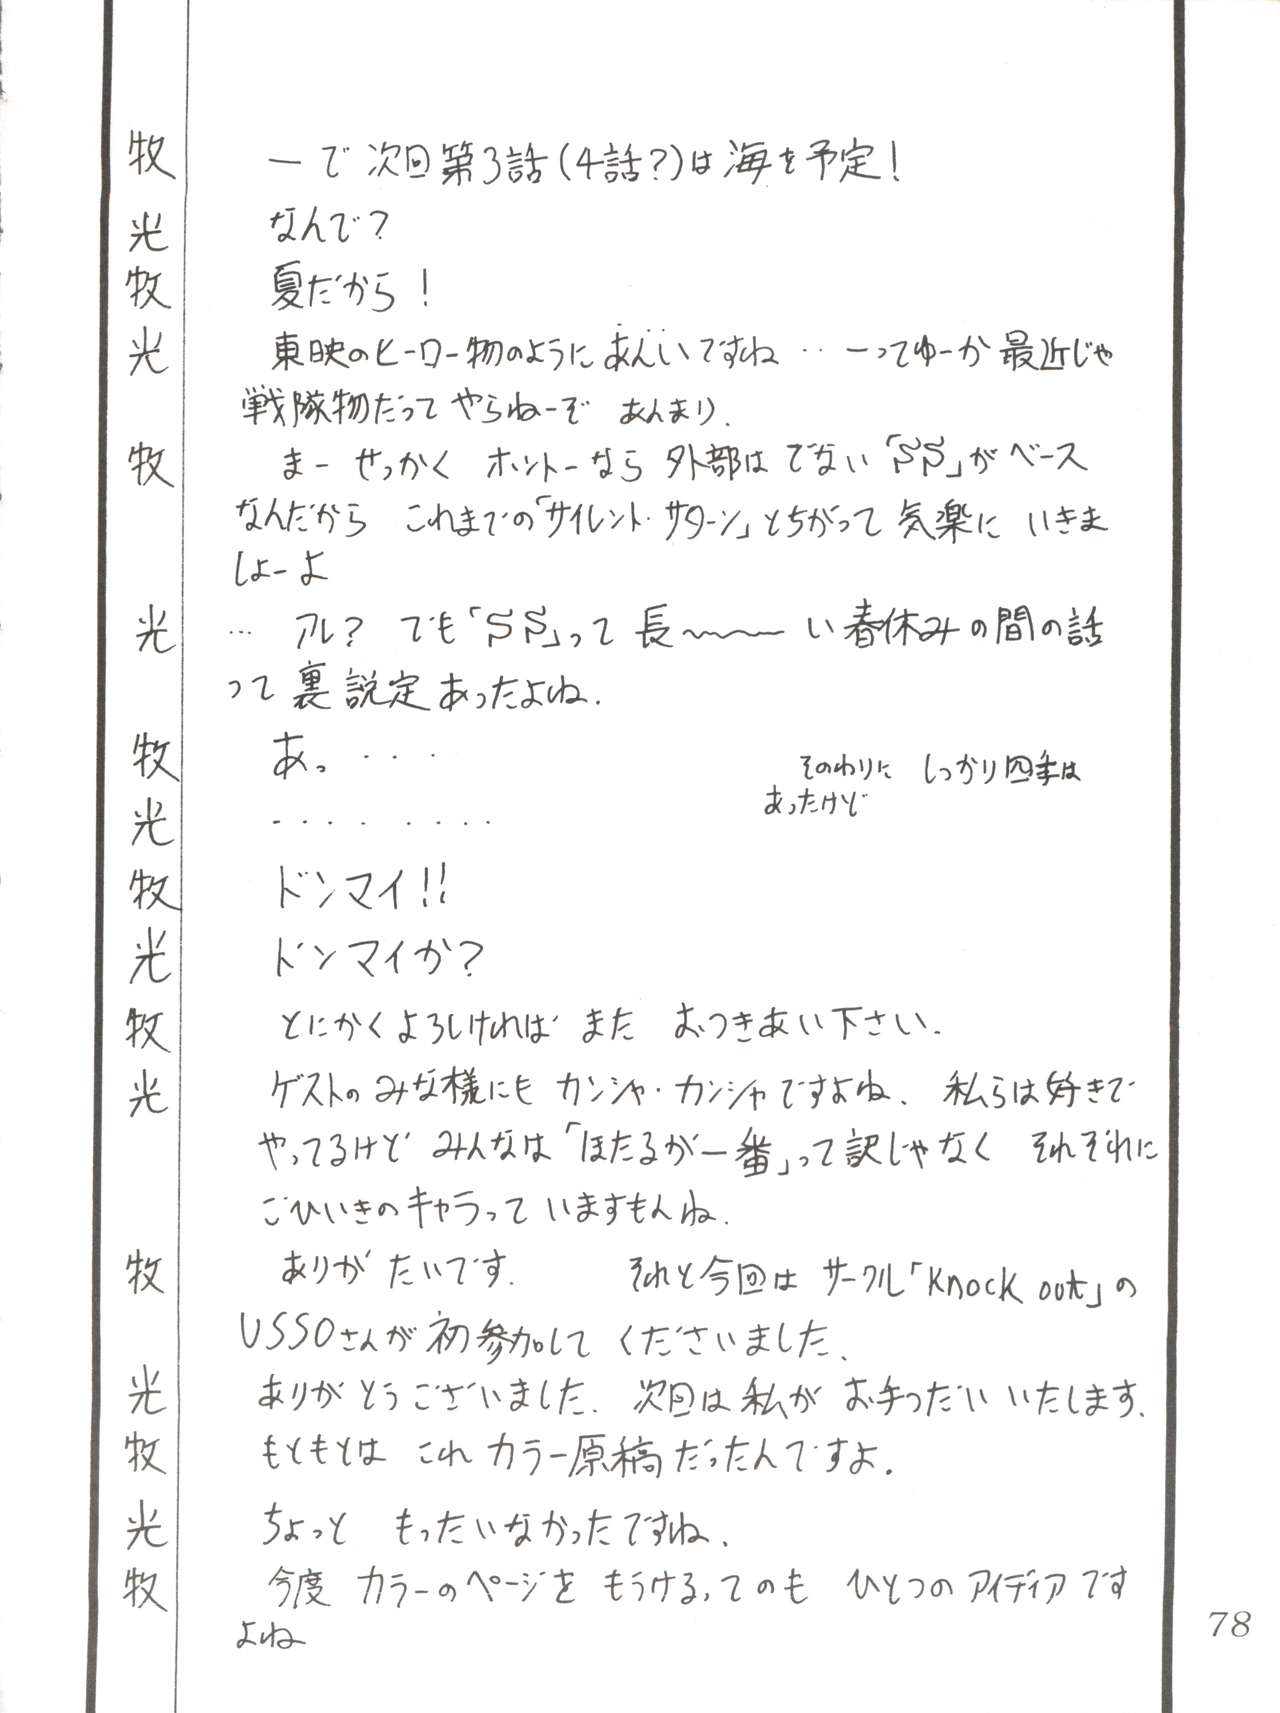 牧 ーで 次回第3話(4話?)は海を予定!
光 なんで?
牧 夏だから!
光 東映のヒーロー物のようにあんいですね・・ーってゆーか 最近じゃ
戦隊物だって やらねーぞ あんまり.
牧 まー せっかく ホントーなら 外部はでない「SS」がベース
なんだから これまでの「サイレント・サターン」とちがって 気楽に いきま
しょーよ
光 … アレ? でも「SS」って 長〜〜〜い 春休みの間の話
って 裏設定あったよね.
牧 あっ・・・・
そのわりに しっかり四季は
あったけど
光 ・・・・・・・・・
牧 ドンマイ!!
光 ドンマイか?
牧 とにかくよろしければ また おつきあい下さい.
光 ゲストのみな様にも カンシャ・カンシャですよね. 私らは好きで
やってるけど みんなは「ほたるが一番」って訳じゃなく それぞれに
ごひいきのキャラって いますもんね.
牧 ありがたいです. それと今回は サークル「Knock out」の
USSOさんが初参加して くださいました.
光 ありがとうございました. 次回は私が お手つだい いたします.
牧 もともとは これ カラー原稿だったんですよ.
光 ちょっと もったいなかったですね.
牧 今度 カラーのページを もうける,てのも ひとつのアイディアです
よね
78